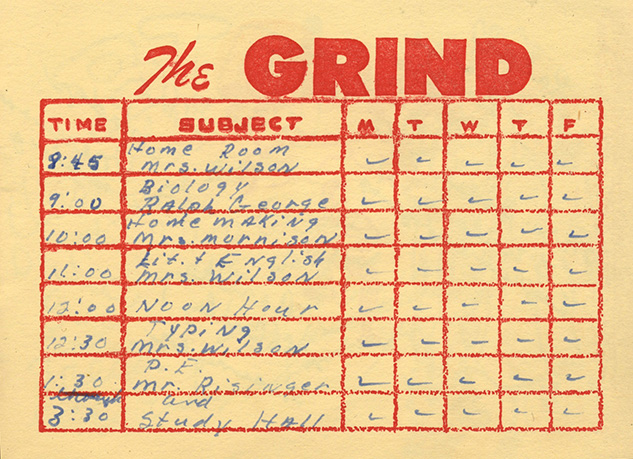 The GRIND
TIME SUBJECT M T W T F
8:45 Home Room
Mrs. Wilson
9:00 Biology
Ralph George
10:00 Home Making
Mrs. Morrison
11:00 Lit. & English
Mrs. Wilson
12:00 NOON Hour
12:30 Typing
Mrs. Wilson
1:30 P.E.
Mr. Risinger
through and
3:30 Study Hall